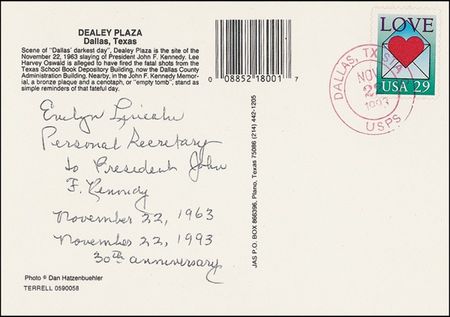 DEALEY PLAZA
Dallas, Texas
Scene of "Dallas' darkest day", Dealey Plaza is the site of the
November 22, 1963 slaying of President John F. Kennedy. Lee
Harvey Oswald is alleged to have fired the fatal shots from the
Texas School Book Depository Building, now the Dallas County
Administration Building. Nearby, in the John F. Kennedy Memor-
ial, a bronze plaque and a cenotaph, or "empty tomb", stand as
simple reminders of that fateful day.
0 08852 18001 7
LOVE
USA 29
DALLAS, TX
NOV
1993
USPS
Evelyn Lincoln
Personal Secretary
to President John
F. Kennedy
November 22, 1963
November 22, 1993
30th anniversary
JAS P.O. BOX 866396, Plano, Texas 75086 (214) 442-1205
Photo © Dan Hatzenbuehler
TERRELL 0590058